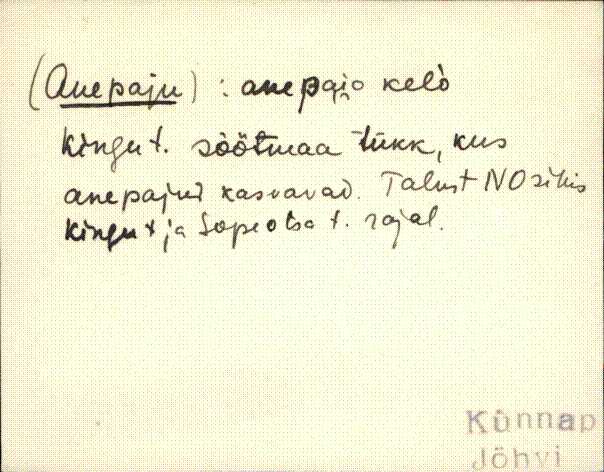 (Anepaju) : anepajo kelò
Kingu t. söötmaa tükk, kus
anepajud kasvavad. Talust NO sihis
Kingu t ja Sopeotsa t. rajal.
Künnap
Jõhvi